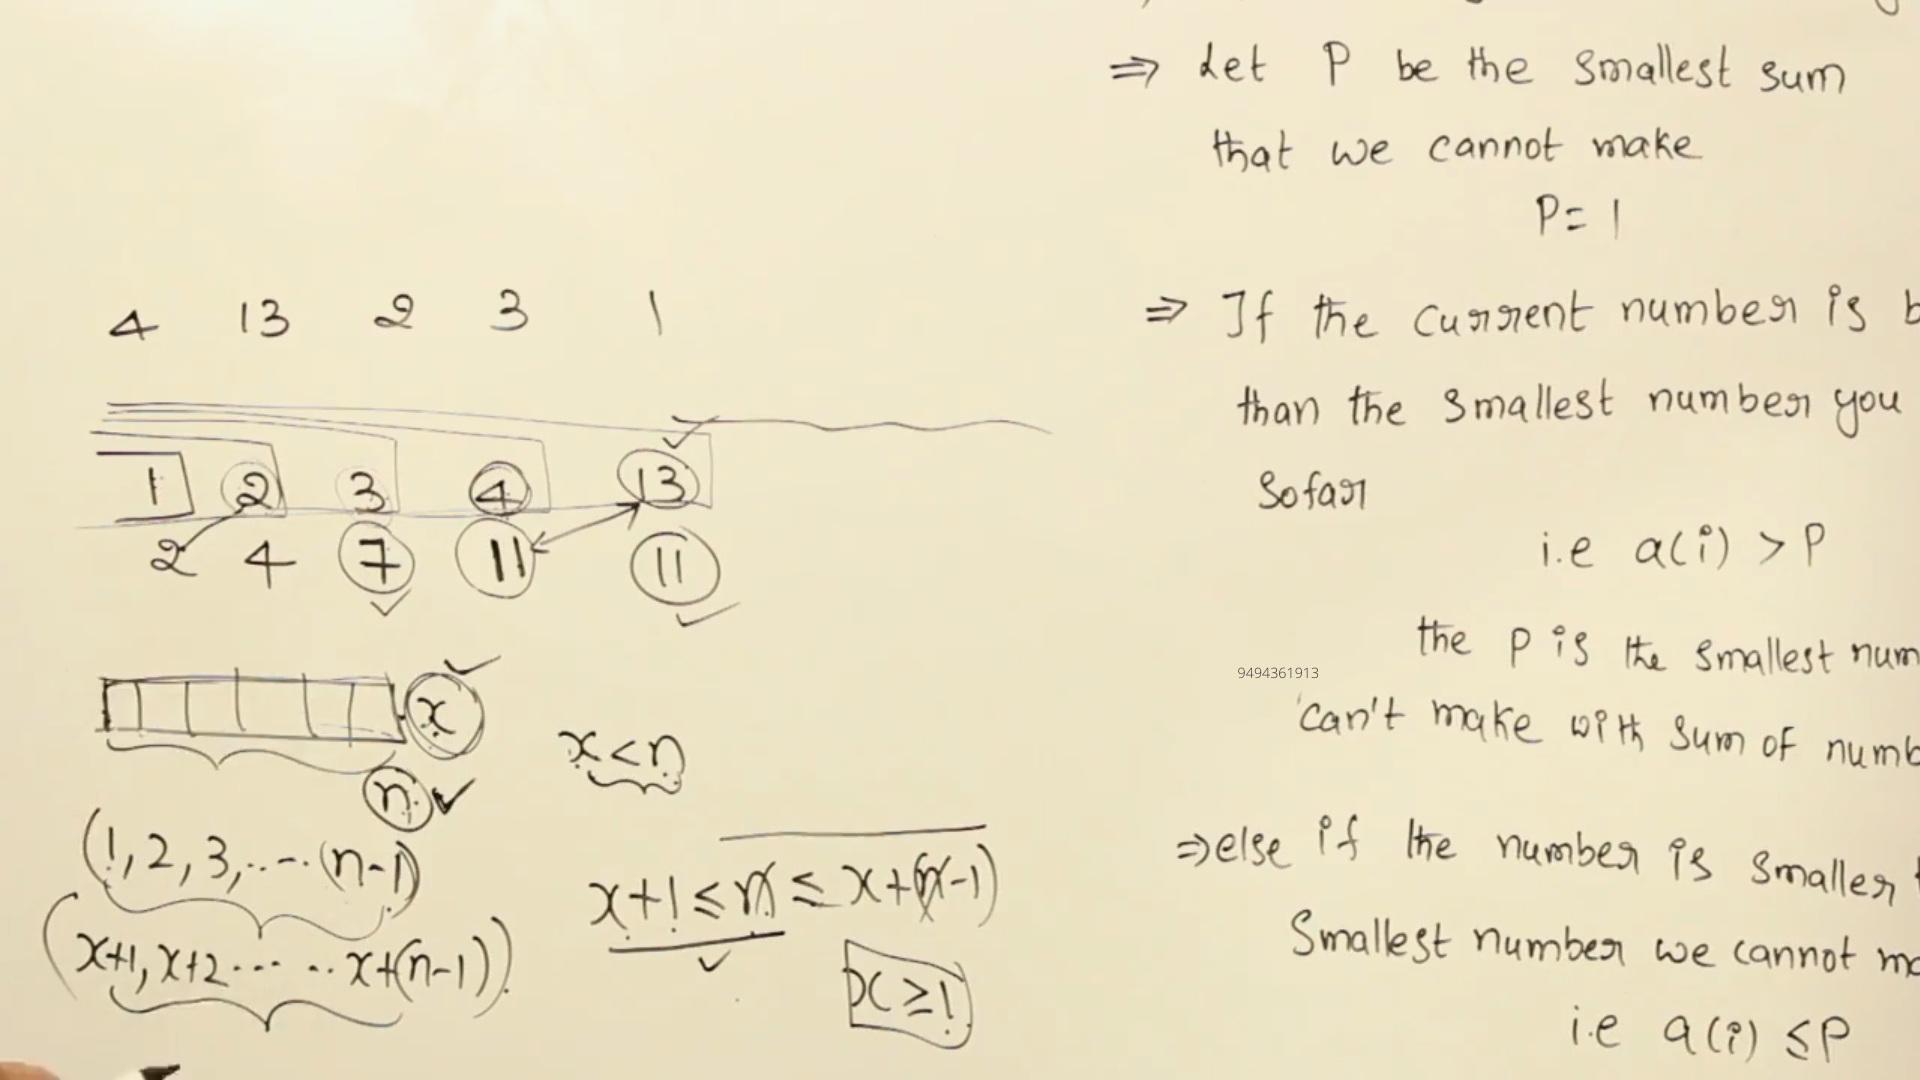 4 13 2 3 1
1 2 3 4 13
2 4 7 11 11
x
n
x<n
(1, 2, 3, ..... (n-1)
(x+1, x+2 ..... x+(n-1))
x+1 ≤ n ≤ x+(n-1)
x ≥ 1
⇒ Let P be the smallest sum
that we cannot make
P= 1
⇒ If the current number is b
than the smallest number you
Sofar
i.e a(i) > P
the P is the smallest num
can't make with sum of numb
⇒ else if the number is smaller
Smallest number we cannot
i.e a(i) ≤P
9494361913